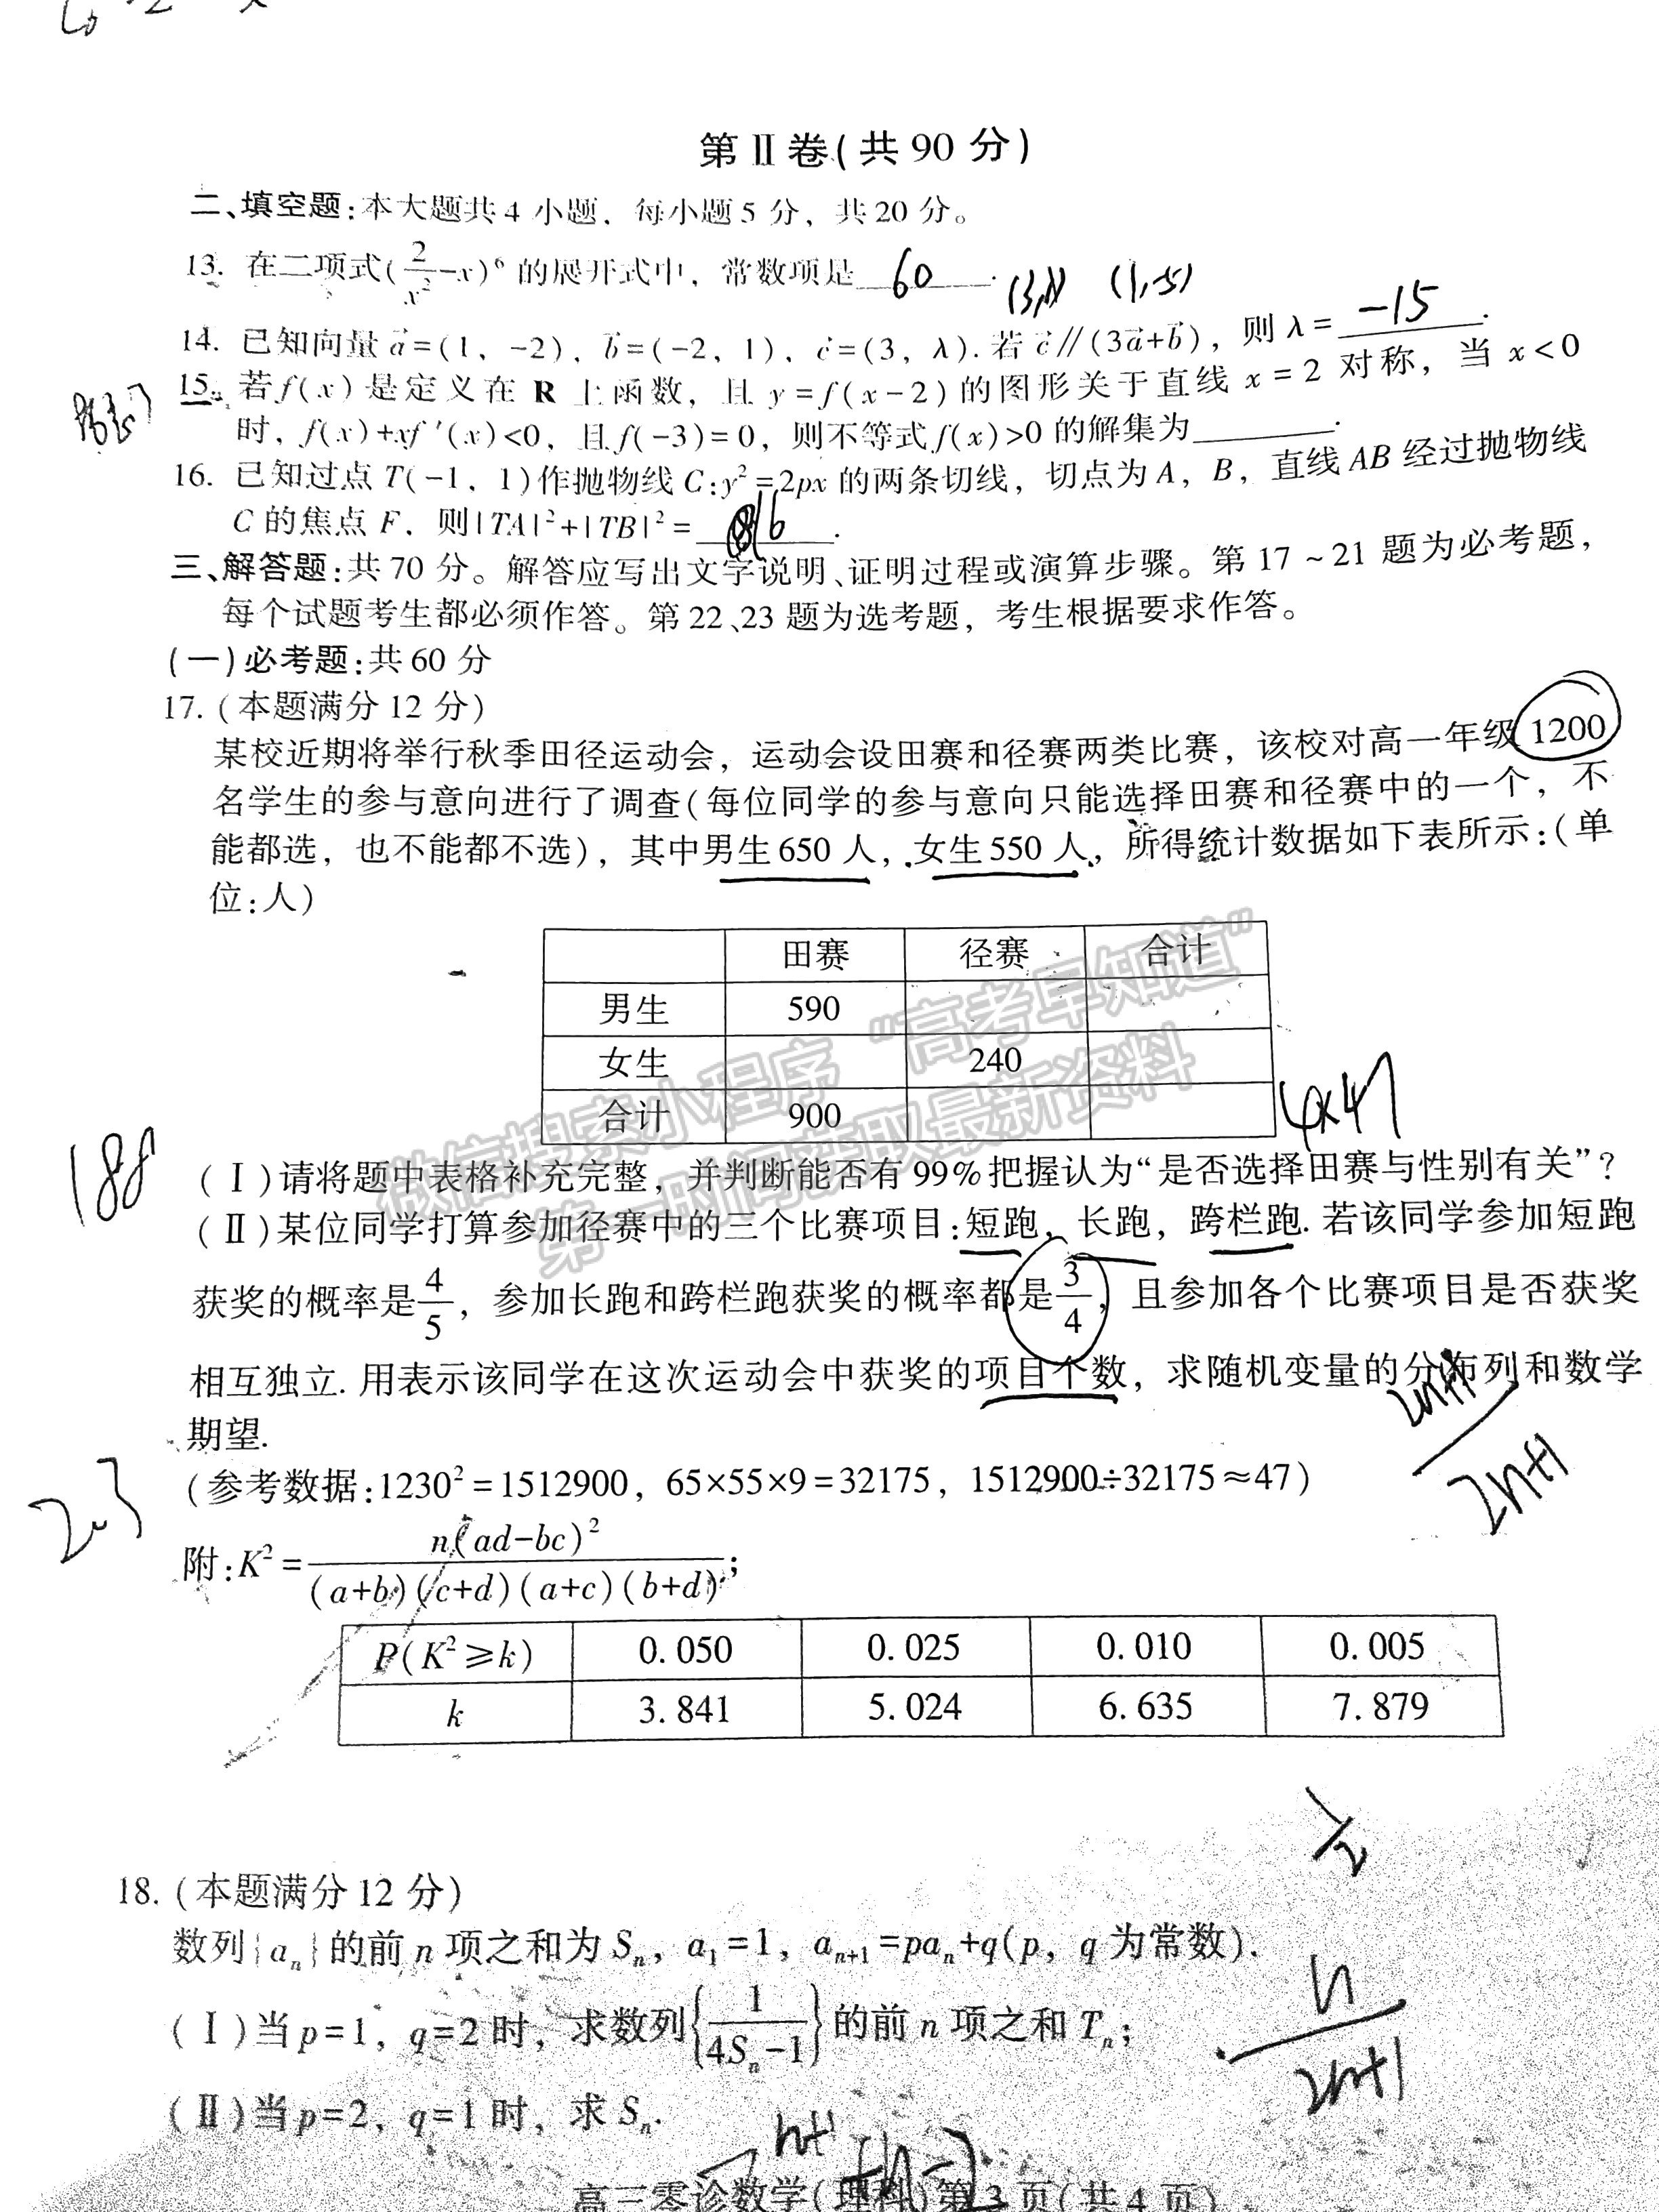 第Ⅱ卷(共90分)
二、填空题:本大题共4小题,每小题5分,共20分。
13. 在二项式(2/x²-x)⁶的展开式中,常数项是 60 .
(3,λ) (1,-5)
14. 已知向量a⃗=(1,-2),b⃗=(-2,1),c⃗=(3,λ).若c⃗∥(3a⃗+b⃗),则λ= -15 .
15. 若f(x)是定义在R上函数,且y=f(x-2)的图形关于直线x=2对称,当x<0
时,f(x)+xf′(x)<0,且f(-3)=0,则不等式f(x)>0的解集为____.
16. 已知过点T(-1,1)作抛物线C:y²=2px的两条切线,切点为A,B,直线AB经过抛物线
C的焦点F,则|TA|²+|TB|²=____.
三、解答题:共70分。解答应写出文字说明、证明过程或演算步骤。第17~21题为必考题,
每个试题考生都必须作答。第22、23题为选考题,考生根据要求作答。
(一)必考题:共60分
17.(本题满分12分)
某校近期将举行秋季田径运动会,运动会设田赛和径赛两类比赛,该校对高一年级1200
名学生的参与意向进行了调查(每位同学的参与意向只能选择田赛和径赛中的一个,不
能都选,也不能都不选),其中男生650人,女生550人,所得统计数据如下表所示:(单
位:人)
田赛 径赛 合计
男生 590
女生 240
合计 900
4×47
微信搜索小程序“高考早知道”
第一时间获取最新资料
188
(Ⅰ)请将题中表格补充完整,并判断能否有99%把握认为“是否选择田赛与性别有关”?
(Ⅱ)某位同学打算参加径赛中的三个比赛项目:短跑,长跑,跨栏跑.若该同学参加短跑
获奖的概率是4/5,参加长跑和跨栏跑获奖的概率都是3/4,且参加各个比赛项目是否获奖
相互独立.用表示该同学在这次运动会中获奖的项目个数,求随机变量的分布列和数学
期望.
2n+1
(参考数据:1230²=1512900,65×55×9=32175,1512900÷32175≈47)
2.3
附:K²=n(ad-bc)²/(a+b)(c+d)(a+c)(b+d);
P(K²≥k) 0.050 0.025 0.010 0.005
k 3.841 5.024 6.635 7.879
18.(本题满分12分)
数列{aₙ}的前n项之和为Sₙ,a₁=1,aₙ₊₁=paₙ+q(p,q为常数).
(Ⅰ)当p=1,q=2时,求数列{1/(4Sₙ-1)}的前n项之和Tₙ;
n/2n+1
(Ⅱ)当p=2,q=1时,求Sₙ.
高三零诊数学(理科)第3页(共4页)